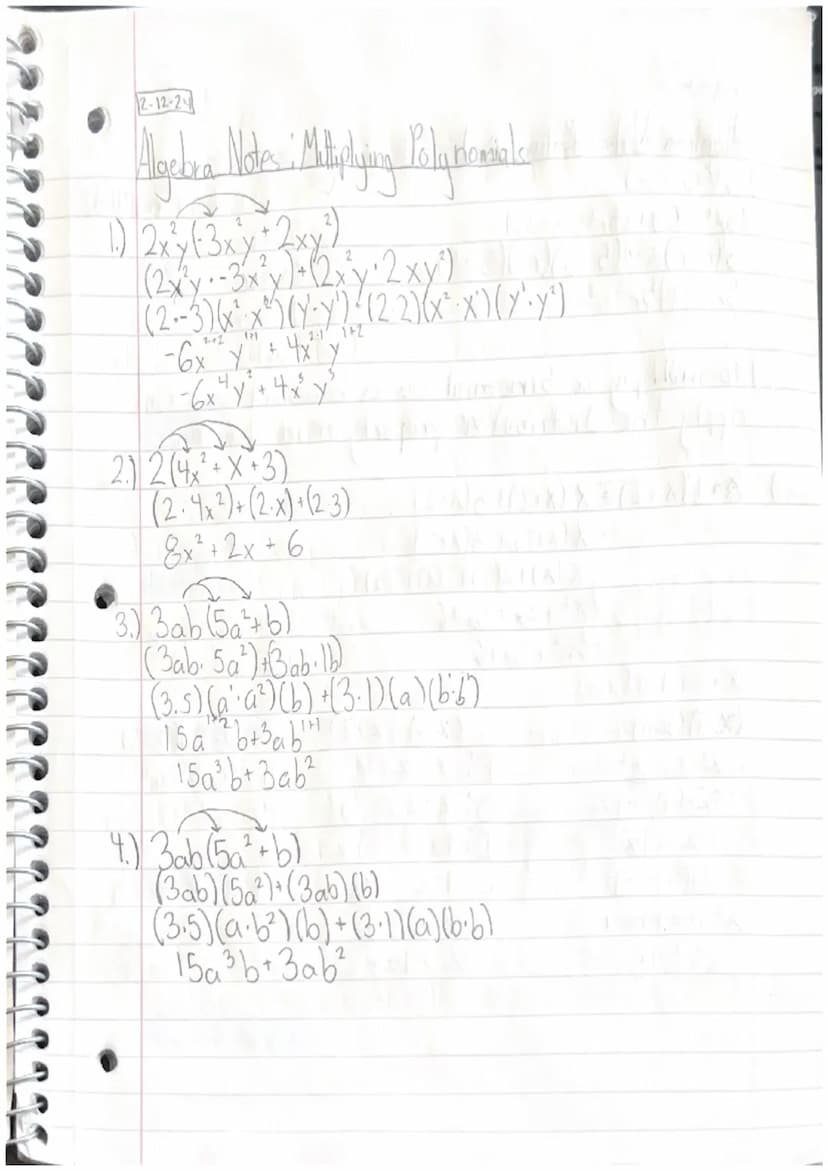 2-12-24
Algebra Notes: Multiplying Polynomials
1.) 2x²y(-3x²y + 2xy²)
(2x²y · -3x²y) + (2x²y · 2xy²)
(2 · -3)(x² · x²)(y¹ · y¹) + (2 2)(x² · x¹)(y¹ · y²)
-6x²⁺² y¹⁺¹ + 4x²⁺¹ y¹⁺²
-6x⁴y² + 4x³y³
2.) 2(4x² + x + 3)
(2 · 4x²) + (2 · x) + (2 3)
8x² + 2x + 6
3.) 3ab(5a² + b)
(3ab · 5a²) + (3ab · 1b)
(3 · 5)(a¹ · a²)(b) + (3 · 1)(a)(b¹ · b¹)
15a¹⁺²b + 3ab¹⁺¹
15a³b + 3ab²
4.) 3ab(5a² + b)
(3ab)(5a²) + (3ab)(b)
(3 · 5)(a · b²)(b) + (3 · 1)(a)(b · b)
15a³b + 3ab²